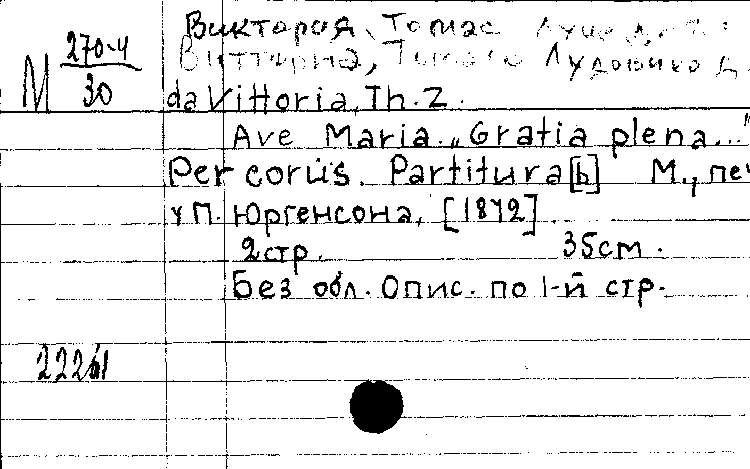 Виктория, Томас Луис де
M 270-4
Витториа, Томазо Лудовико д
30
da Vittoria, Th. Z.
Ave Maria. „Gratia plena..."
Per corus. Partitura [b] М., печ
у П. Юргенсона, [1872]
2стр. 35см.
Без обл. Опис. по 1-й стр.
22261